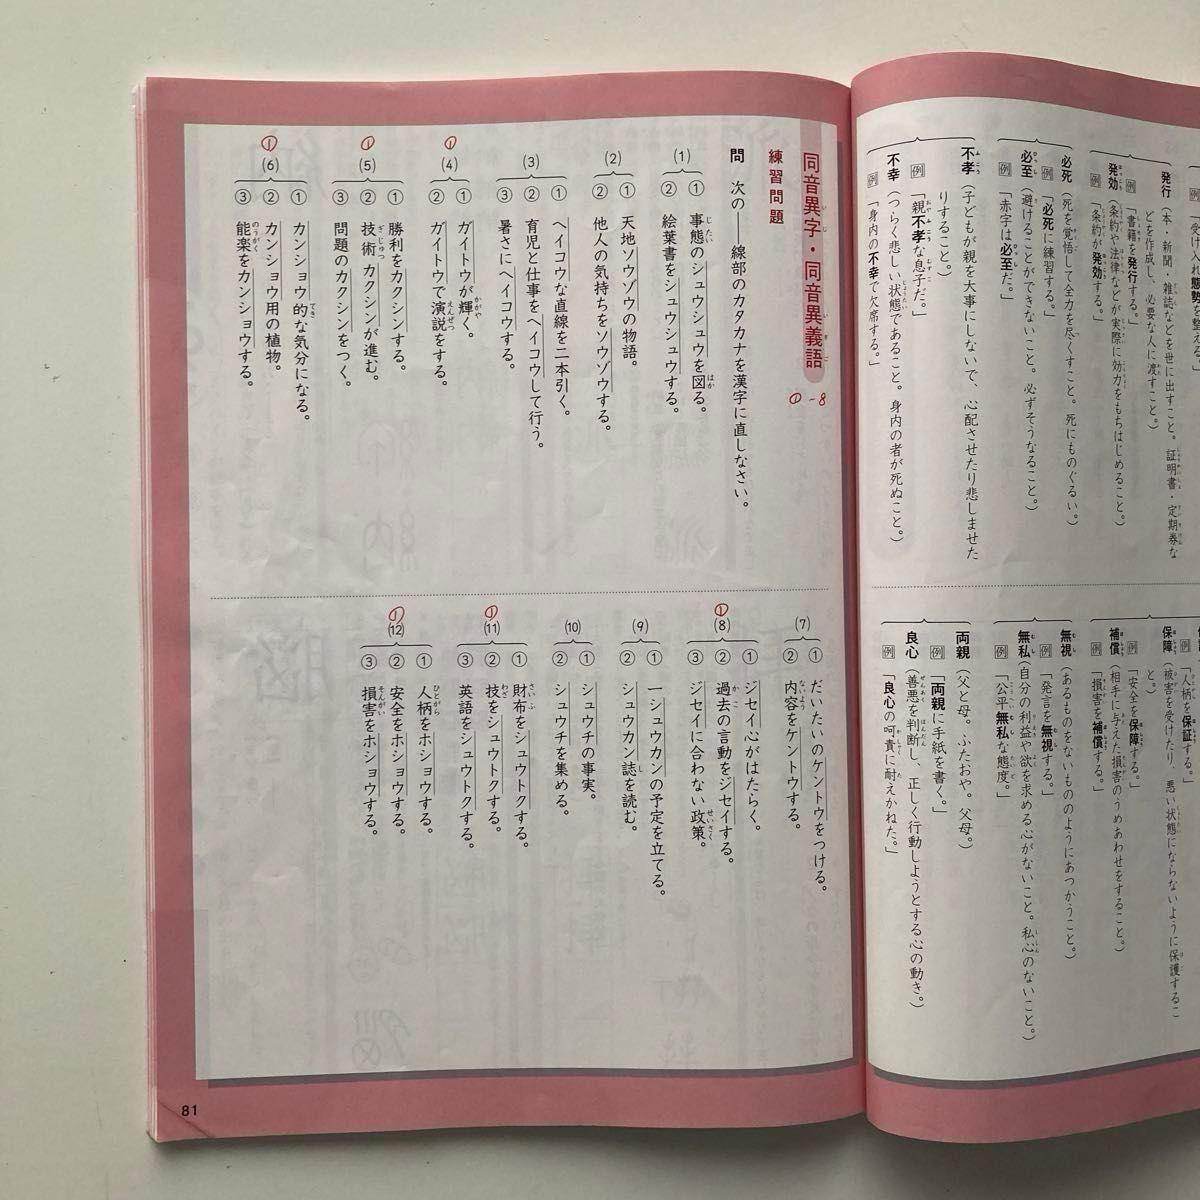 受け入れ態勢を整える。」
発行(本・新聞・雑誌などを世に出すこと。証明書・定期券な
どを作成し、必要な人に渡すこと。)
例「書籍を発行する。」
発効(条約や法律などが実際に効力をもちはじめること。)
例「条約が発効する。」
必死(死を覚悟して全力を尽くすこと。死にものぐるい。)
例「必死に練習する。」
必至(避けることができないこと。必ずそうなること。)
例「赤字は必至だ。」
不孝(子どもが親を大事にしないで、心配させたり悲しませた
りすること。)
例「親不孝な息子だ。」
不幸(つらく悲しい状態であること。身内の者が死ぬこと。)
例「身内の不幸で欠席する。」
例「人柄を保証する。」
保障(被害を受けたり、悪い状態にならないように保護するこ
と。)
例「安全を保障する。」
補償(相手に与えた損害のうめあわせをすること。)
例「損害を補償する。」
無視(あるものをないもののようにあつかうこと。)
例「発言を無視する。」
無私(自分の利益や欲を求める心がないこと。私心のないこと。)
例「公平無私な態度。」
両親(父と母。ふたおや。父母。)
例「両親に手紙を書く。」
良心(善悪を判断し、正しく行動しようとする心の動き。)
例「良心の呵責に耐えかねた。」
同音異字・同音異義語
①-8
練習問題
問 次の――線部のカタカナを漢字に直しなさい。
(1)
① 事態のシュウシュウを図る。
② 絵葉書をシュウシュウする。
(2)
① 天地ソウゾウの物語。
② 他人の気持ちをソウゾウする。
(3)
① ヘイコウな直線を二本引く。
② 育児と仕事をヘイコウして行う。
③ 暑さにヘイコウする。
①
(4)
① ガイトウが輝く。
② ガイトウで演説をする。
①
(5)
① 勝利をカクシンする。
② 技術カクシンが進む。
③ 問題のカクシンをつく。
①
(6)
① カンショウ的な気分になる。
② カンショウ用の植物。
③ 能楽をカンショウする。
(7)
① だいたいのケントウをつける。
② 内容をケントウする。
①
(8)
① ジセイ心がはたらく。
② 過去の言動をジセイする。
③ ジセイに合わない政策。
(9)
① 一シュウカンの予定を立てる。
② シュウカン誌を読む。
(10)
① シュウチの事実。
② シュウチを集める。
①
(11)
① 財布をシュウトクする。
② 技をシュウトクする。
③ 英語をシュウトクする。
①
(12)
① 人柄をホショウする。
② 安全をホショウする。
③ 損害をホショウする。
81